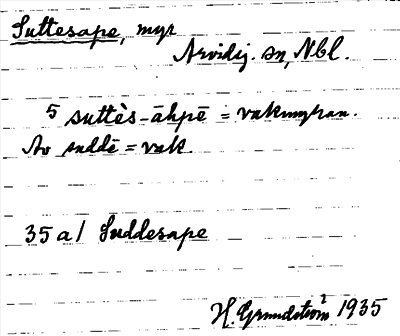 Suttesape, myr
Arvidsj. sn, Nbl.
5 suttès-āhpē = vakmyran.
Av suddē = vak.
35 a/ Suddesape
H. Grundström 1935